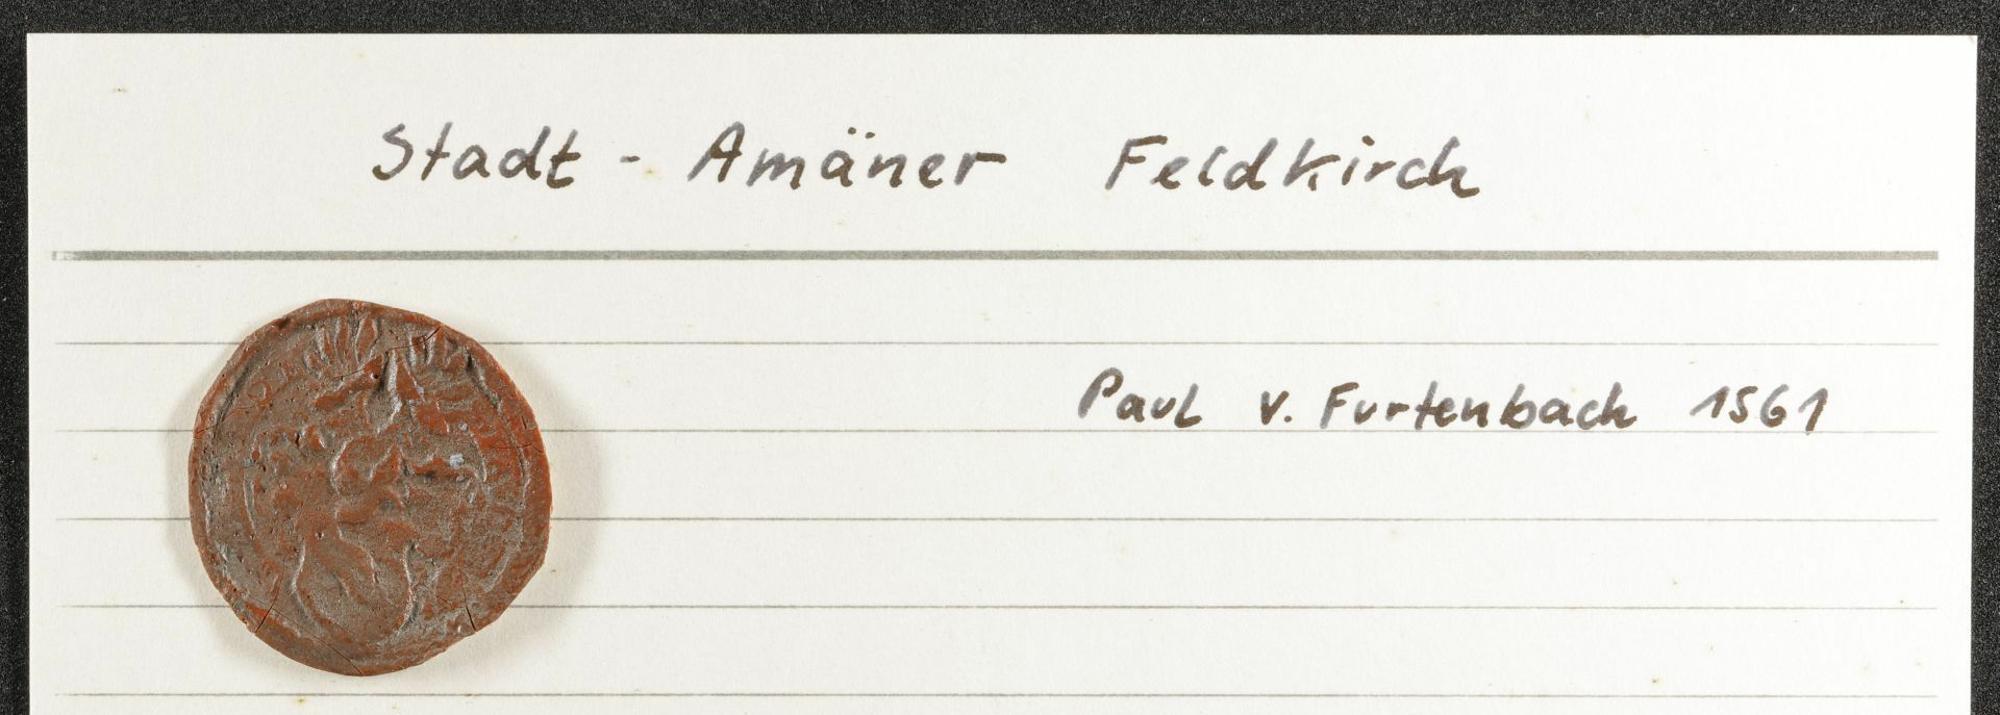 Stadt - Amäner Feldkirch
Paul v. Furtenbach 1561